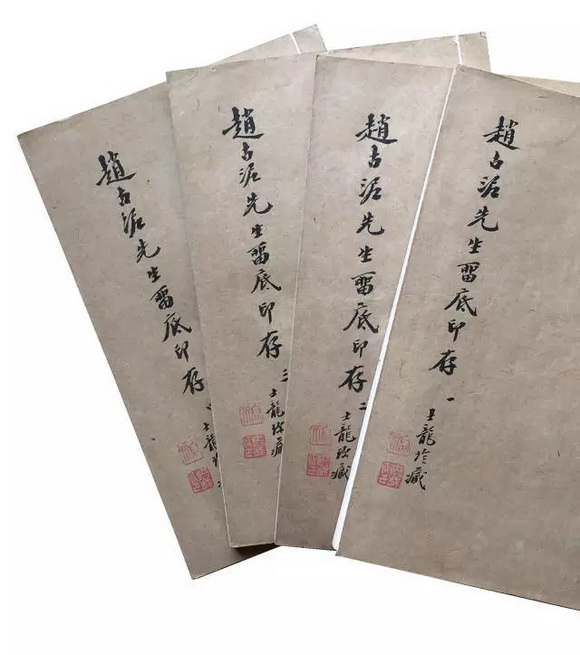 趙古泥先生畱底印存 一
士龍珍藏
趙古泥先生畱底印存 二
士龍珍藏
趙古泥先生畱底印存 三
士龍珍藏
趙古泥先生畱底印存
士龍